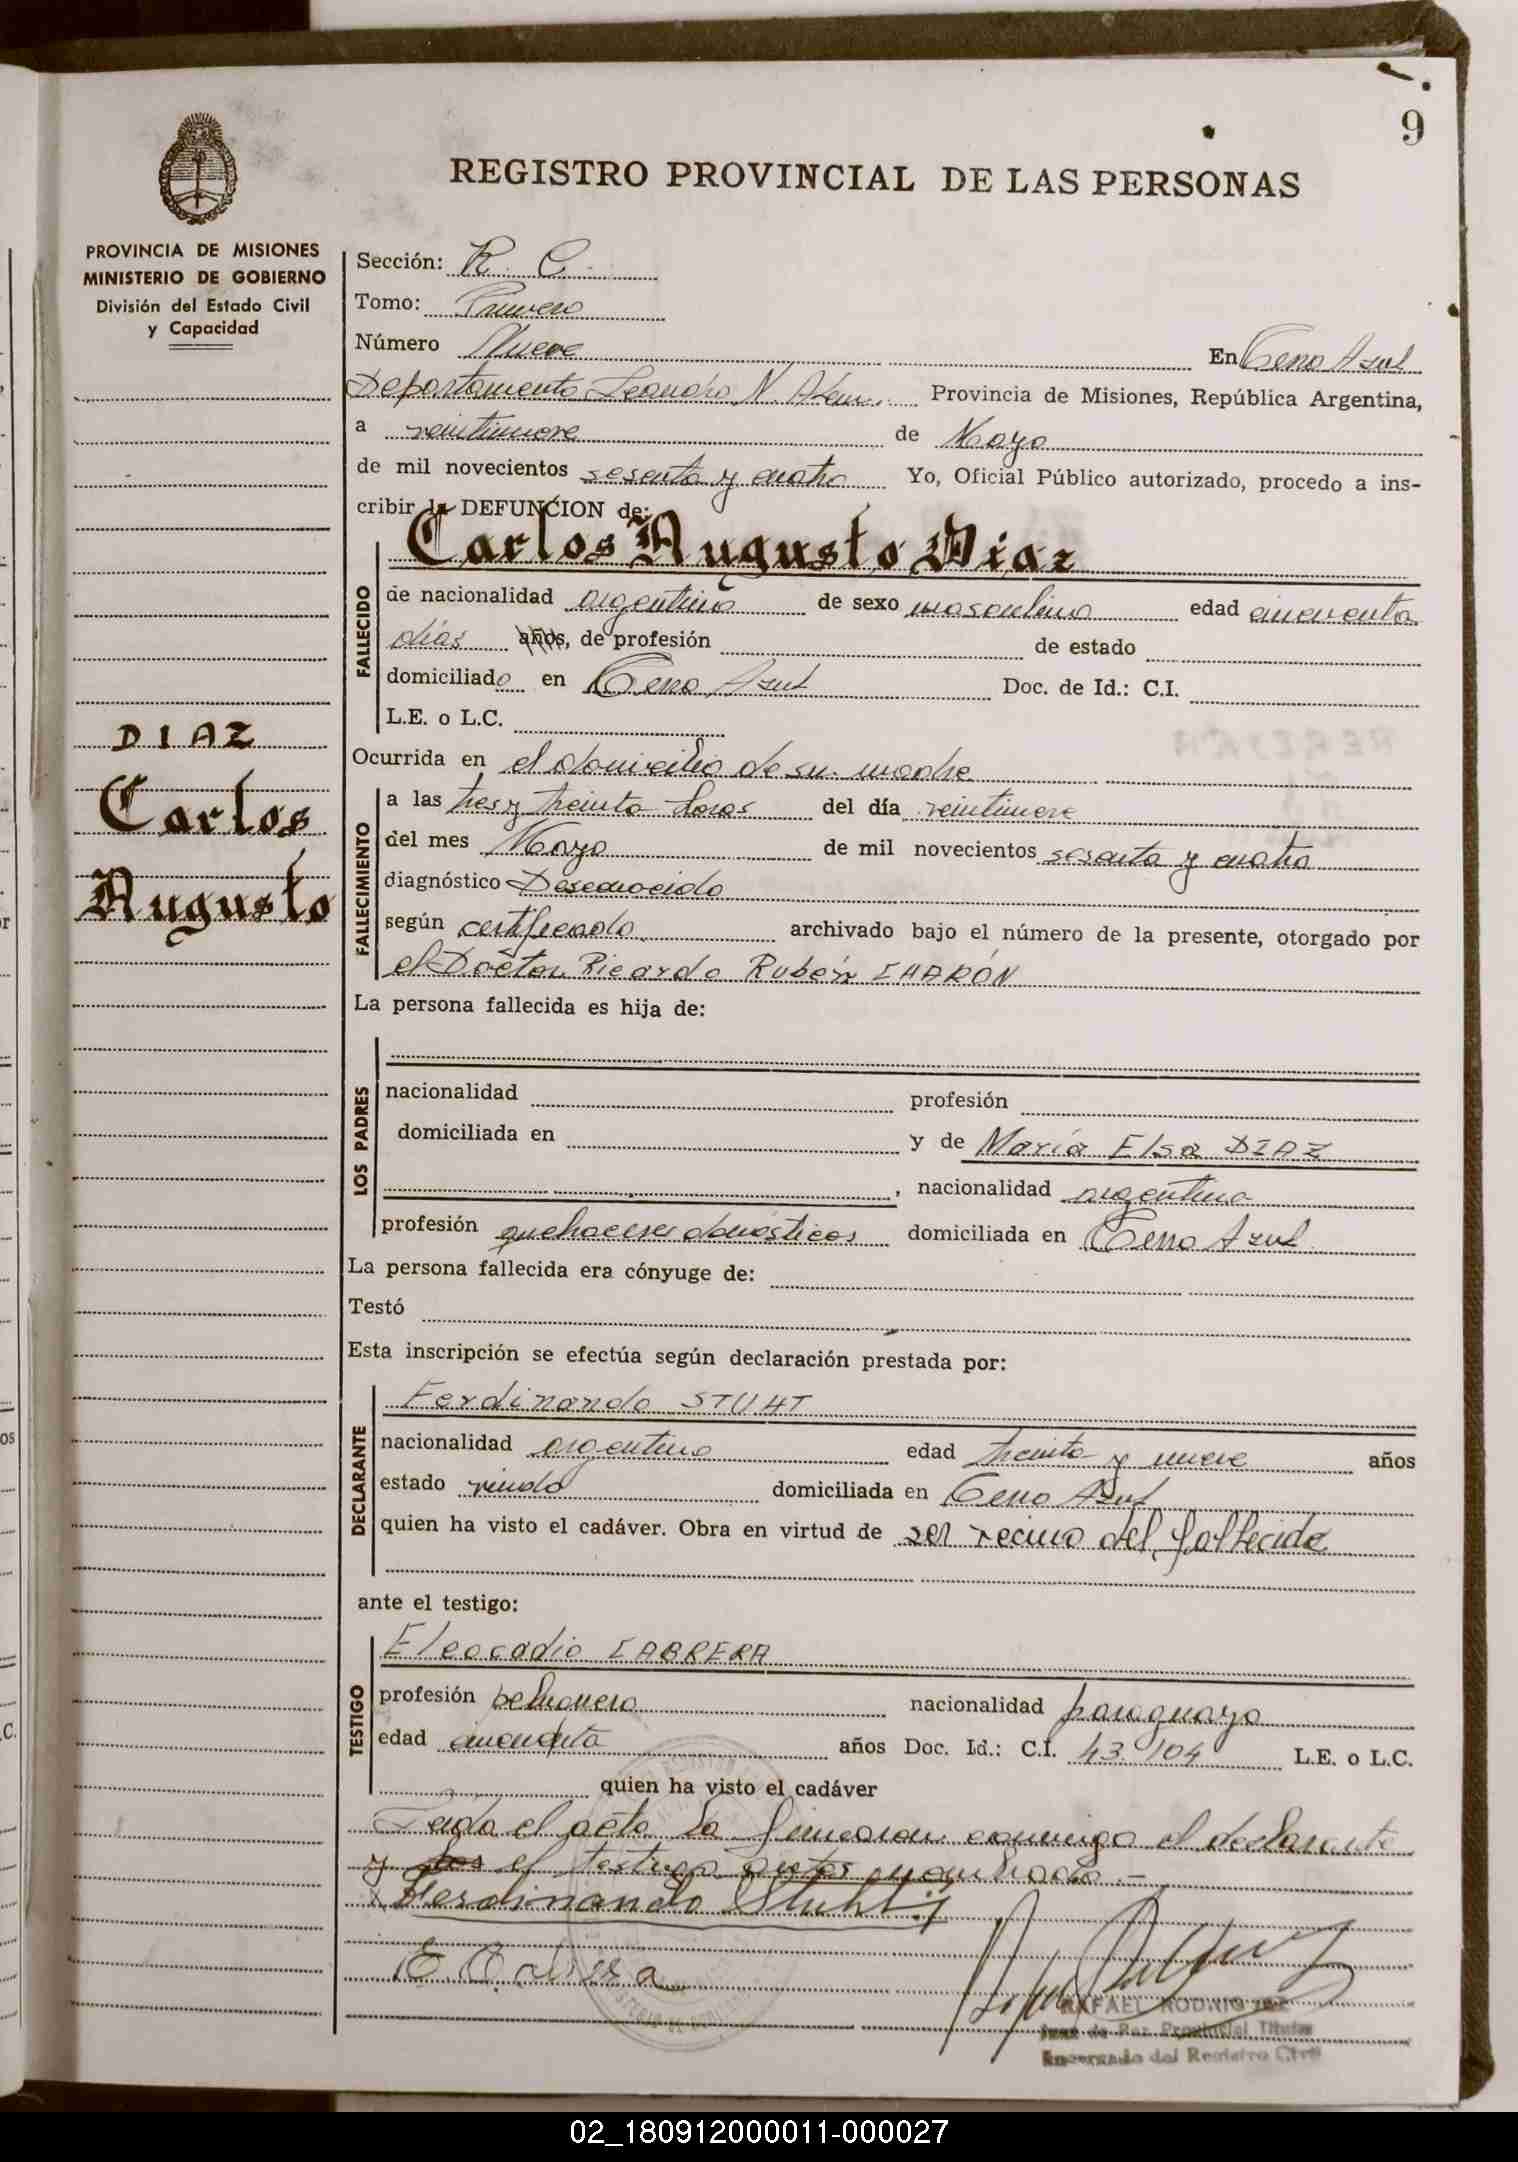 9
REGISTRO PROVINCIAL DE LAS PERSONAS
PROVINCIA DE MISIONES
MINISTERIO DE GOBIERNO
División del Estado Civil
y Capacidad
DIAZ
Carlos
Augusto
Sección: R. C.
Tomo: Primero
Número Nueve En Cerro Azul
Departamento Leandro N. Alem. Provincia de Misiones, República Argentina,
a veintinueve de Mayo
de mil novecientos sesenta y cuatro Yo, Oficial Público autorizado, procedo a ins-
cribir la DEFUNCION de:
Carlos Augusto Diaz
FALLECIDO
de nacionalidad argentina de sexo masculino edad cincuenta
días años, de profesión de estado
domiciliado en Cerro Azul Doc. de Id.: C.I.
L.E. o L.C.
Ocurrida en el domicilio de su madre
FALLECIMIENTO
a las tres y treinta horas del día veintinueve
del mes Mayo de mil novecientos sesenta y cuatro
diagnóstico Desconocido
según certificado archivado bajo el número de la presente, otorgado por
el Doctor Ricardo Rubén CHARÓN
La persona fallecida es hija de:
LOS PADRES
nacionalidad profesión
domiciliada en y de María Elsa DIAZ
, nacionalidad argentina
profesión quehaceres domésticos domiciliada en Cerro Azul
La persona fallecida era cónyuge de:
Testó
Esta inscripción se efectúa según declaración prestada por:
DECLARANTE
Ferdinando STUHT
nacionalidad argentino edad treinta y nueve años
estado viudo domiciliada en Cerro Azul
quien ha visto el cadáver. Obra en virtud de ser vecino del fallecido
ante el testigo:
TESTIGO
Eleocadio CABRERA
profesión peluquero nacionalidad paraguaya
edad cincuenta años Doc. Id.: C.I. 43.104 L.E. o L.C.
quien ha visto el cadáver
Leída el acta la firmaron conmigo el declarante
y los el testigo antes nombrado.-
Ferdinando Stuht
E Cabrera
RAFAEL RODRIGUEZ
Juez de Paz Provincial Titular
Encargado del Registro Civil
02_180912000011-000027